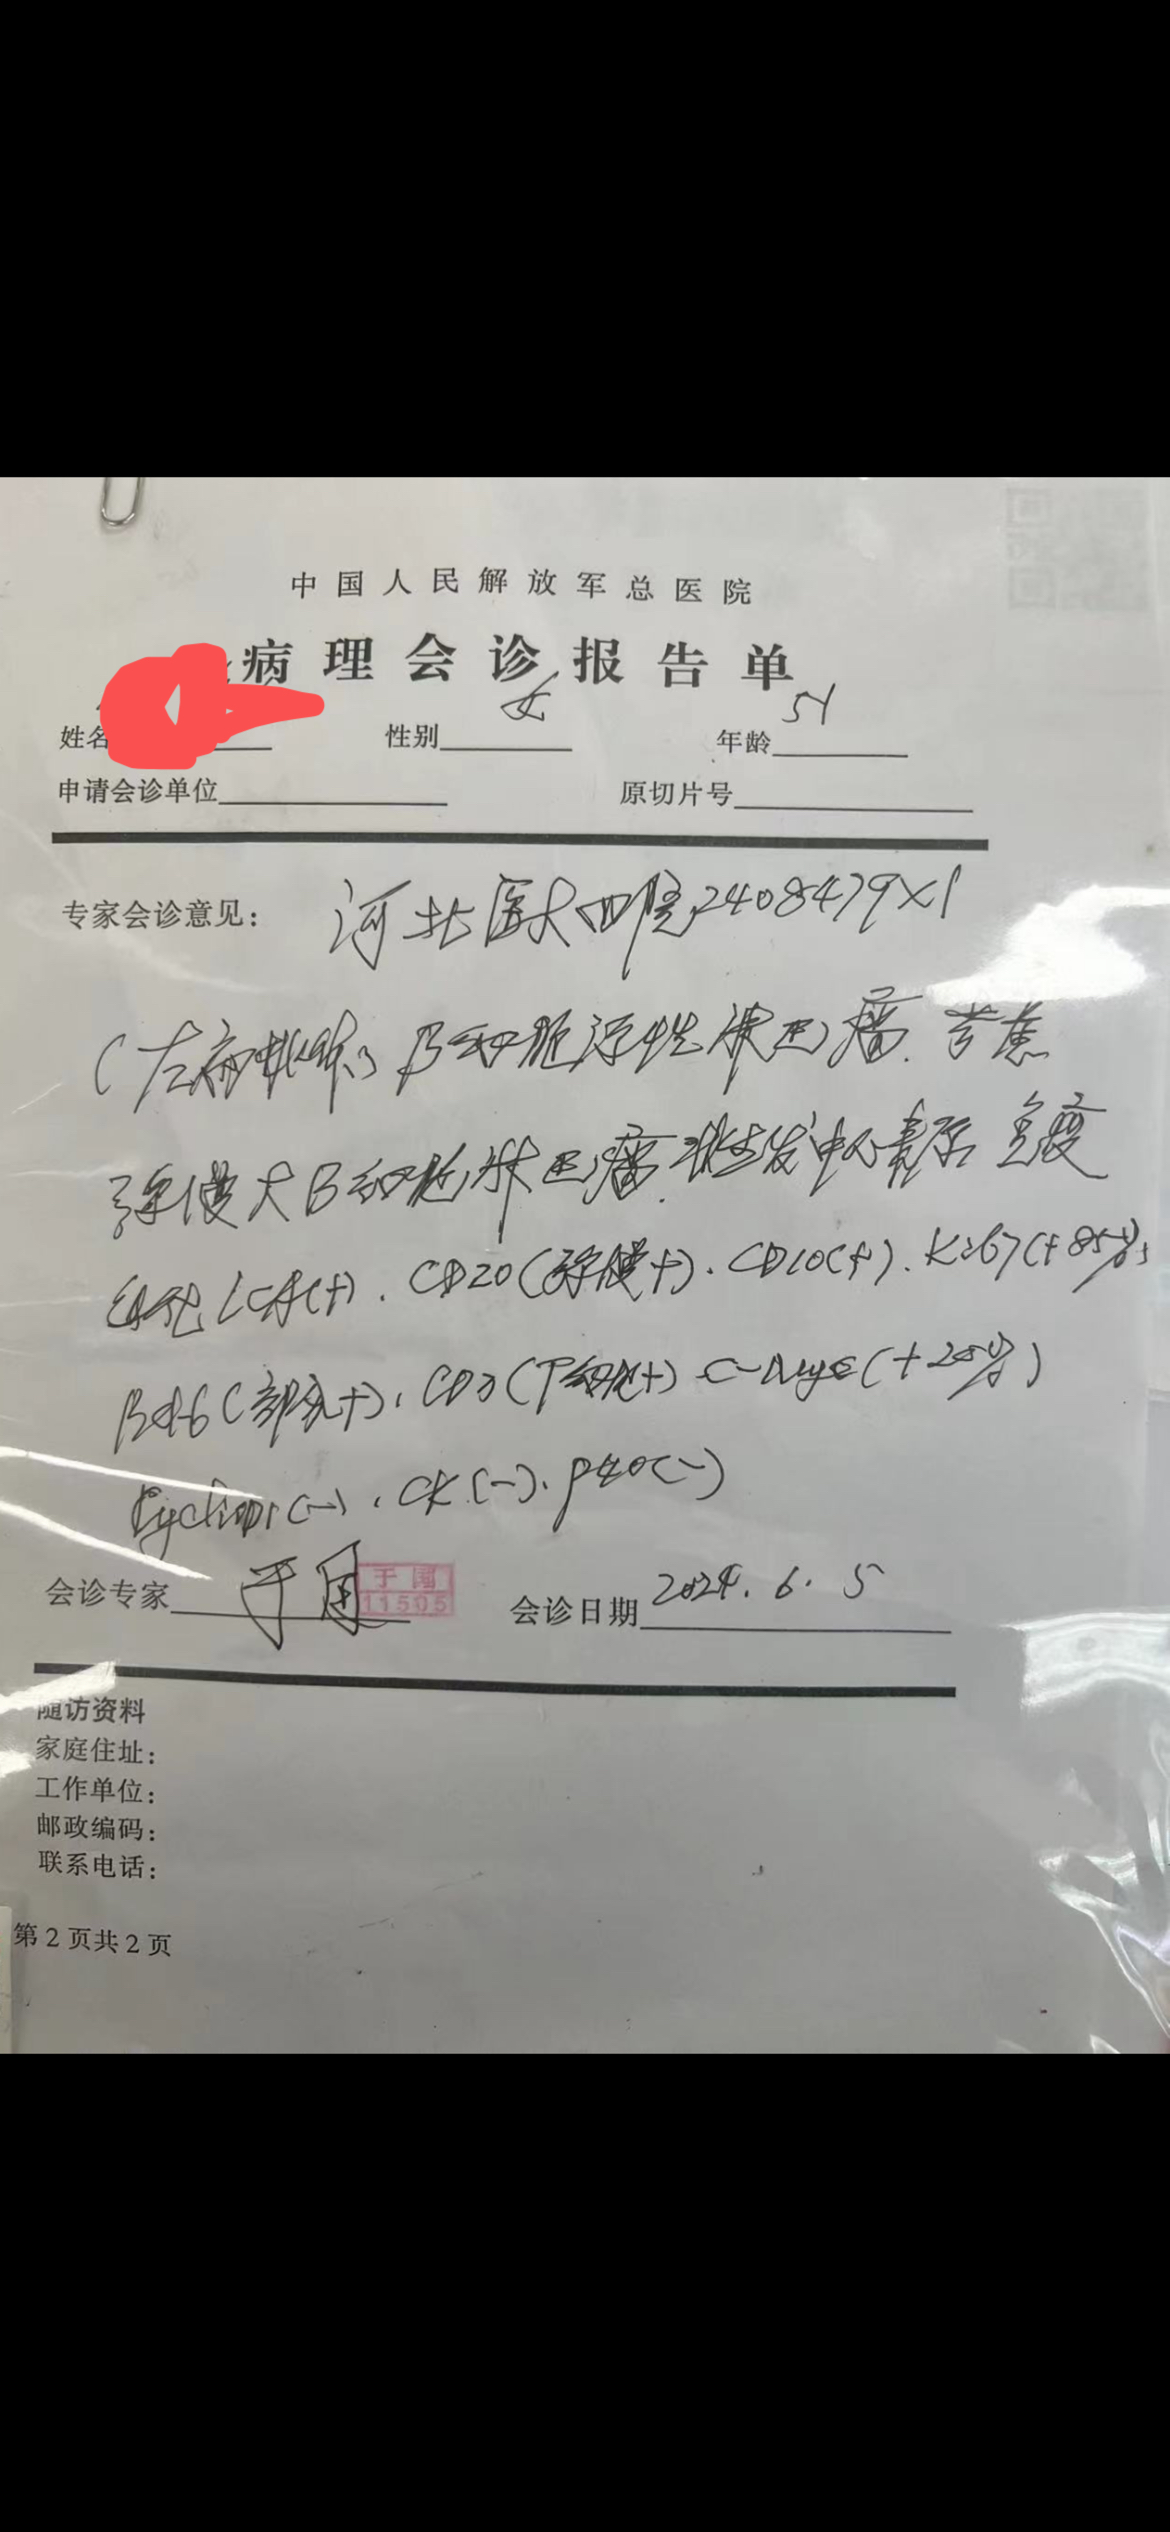 中国人民解放军总医院
病理会诊报告单
姓名 性别 女 年龄 51
申请会诊单位 原切片号
专家会诊意见: 河北医大四院2408479×1
(左扁桃体) B细胞恶性淋巴瘤.
弥漫大B细胞淋巴瘤. 生发中心 免疫
组化 LCA(+). CD20(弥漫+). CD10(+). Ki67(+85%),
Bcl-6(部分+), CD3(T细胞+) C-Myc(+20%)
CyclinD1(-), CK(-). P40(-)
会诊专家 于国 于国 11505 会诊日期 2024.6.5
随访资料
家庭住址:
工作单位:
邮政编码:
联系电话:
第2页共2页